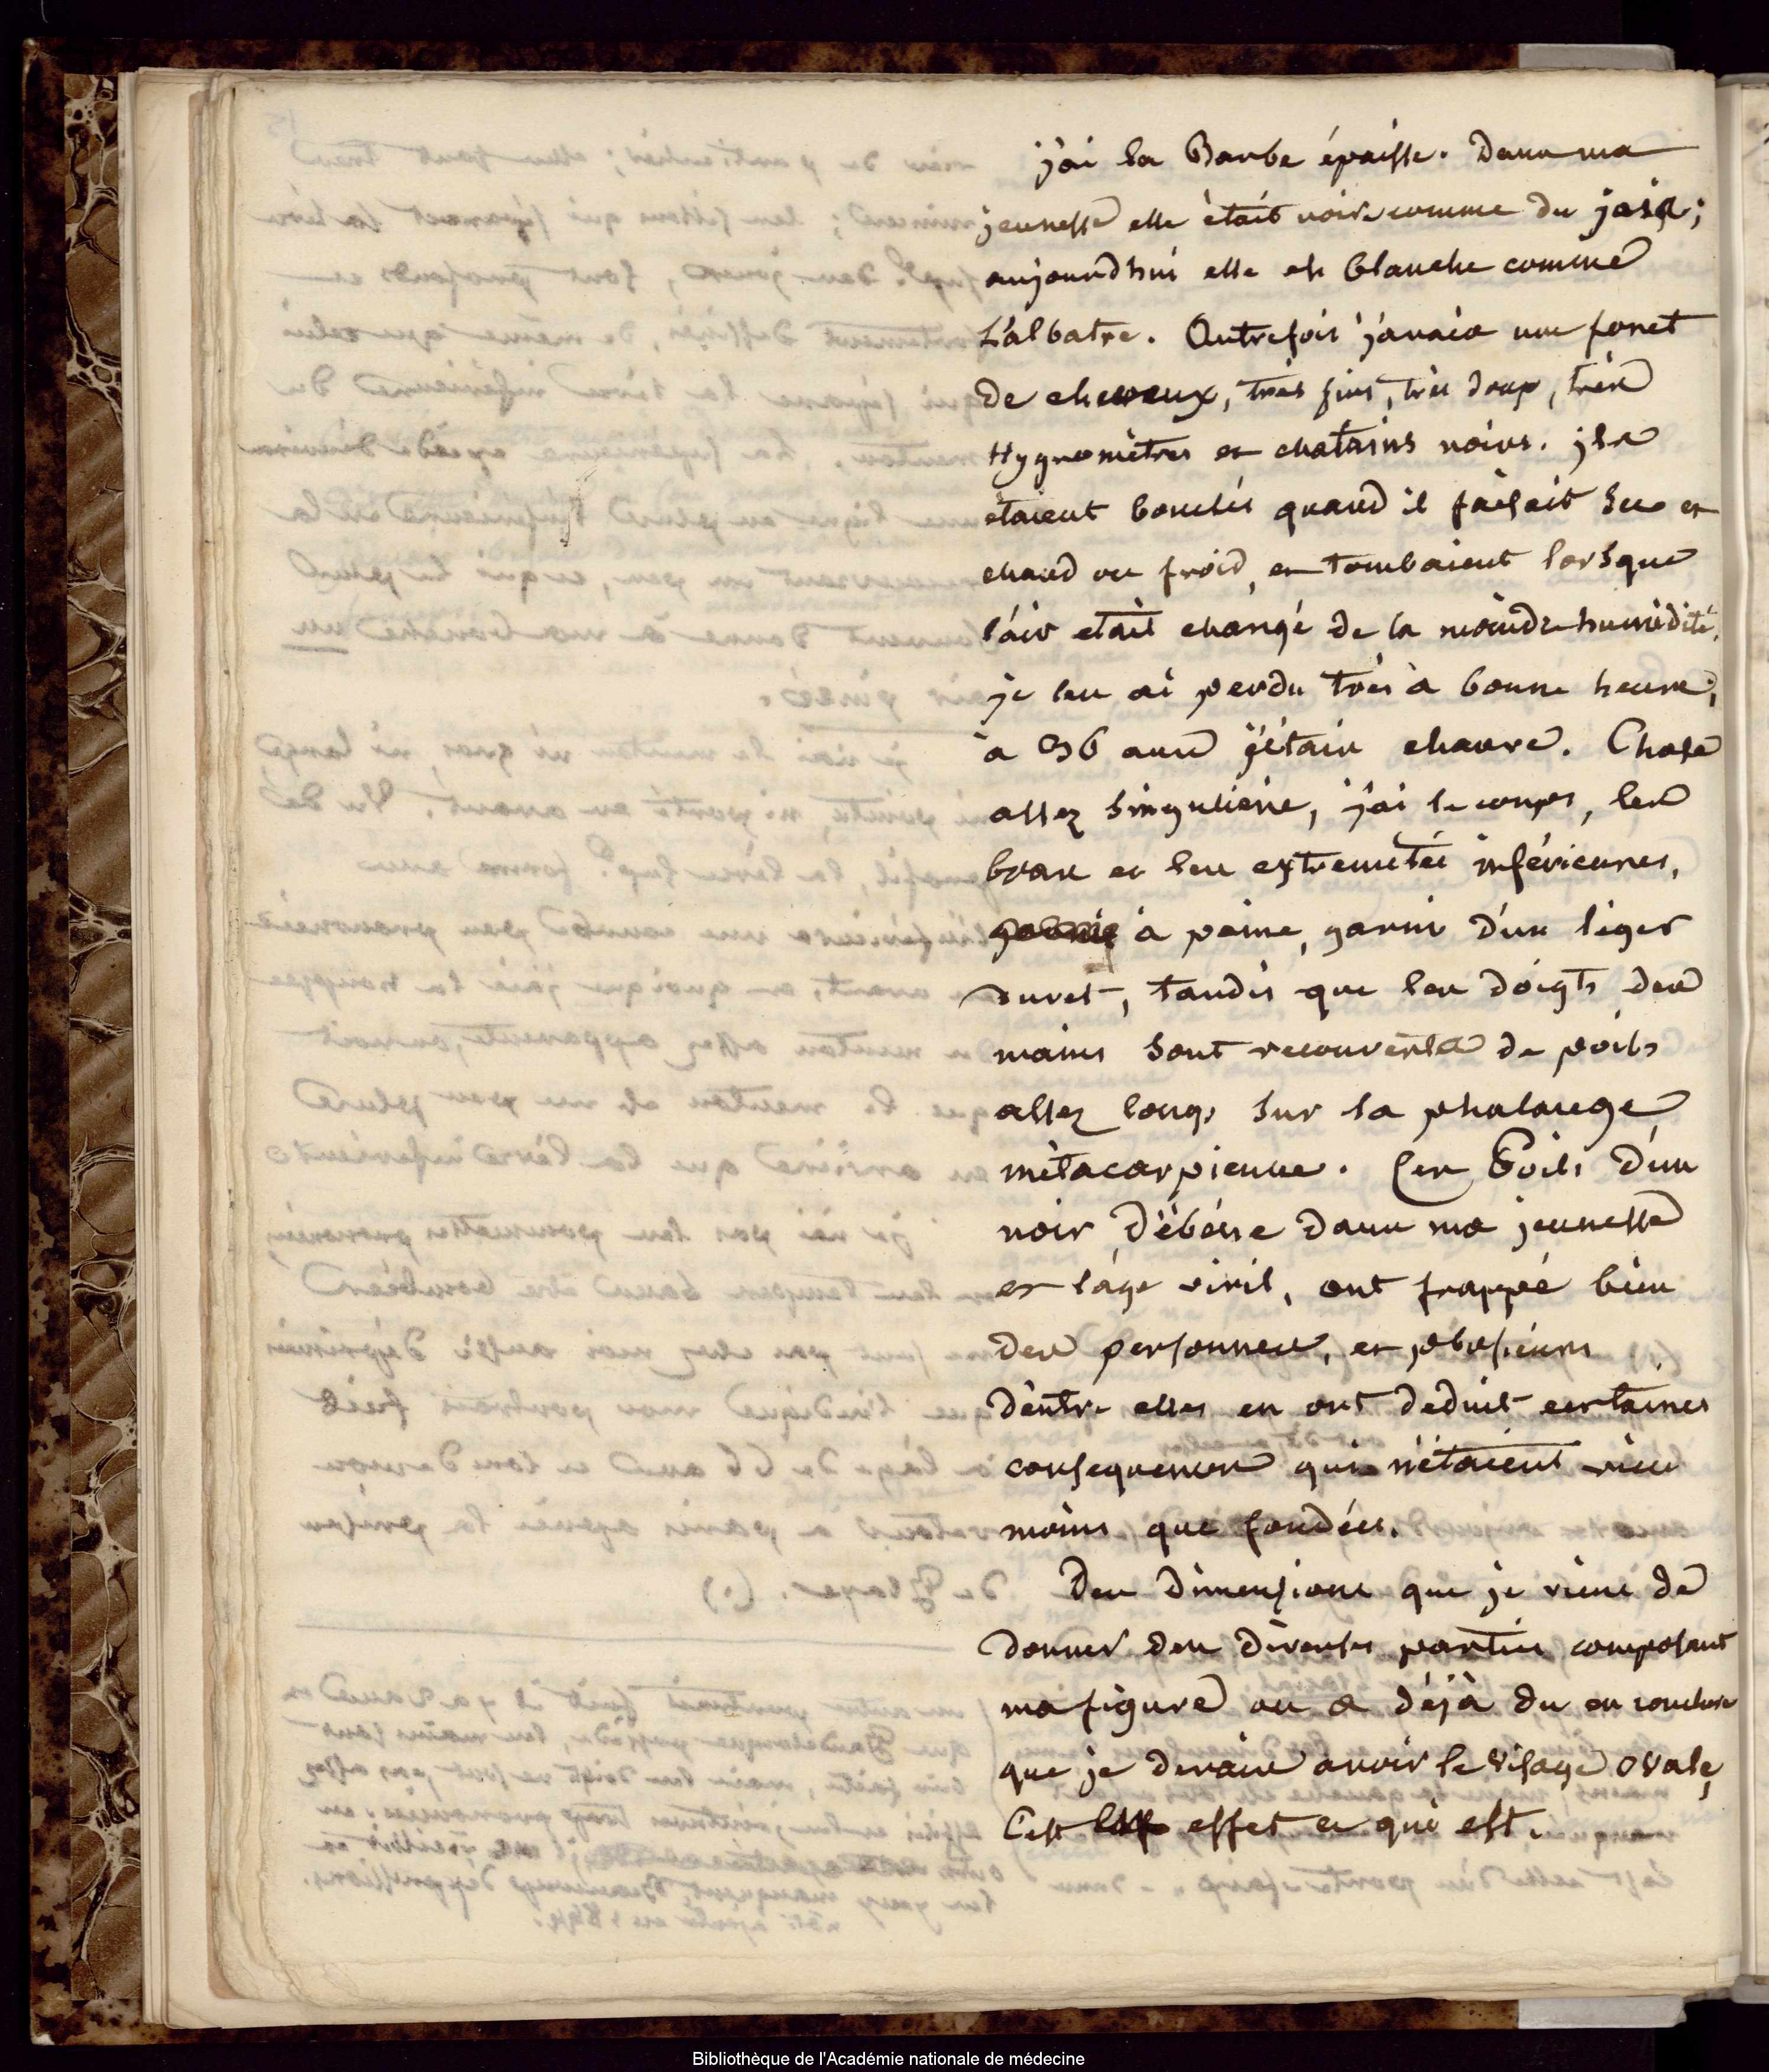 j'ai la Barbe épaisse. Dans ma
jeunesse elle était noire comme du jais;
aujourd'hui elle est blanche comme
L'albatre. Autrefois j'avais une foret
de cheveux, très fins, très doux, très
Hygromètres et chatains noirs. ils
étaient bouclés quand il faisait sec et
chaud ou froid, et tombaient lorsque
l'air etait chargé de la moindre humidité.
je les ai perdu très à bonne heure;
à 36 ans j'étais chauve. Chose
assez singulière, j'ai le corps, les
bras et les extremités inférieures,
à peine, garni d'un léger
duvet, tandis que les doigts des
mains sont recouverts de poils
assez longs sur la phalange
métacarpienne. Ces Poils d'un
noir d'ébène dans ma jeunesse
et l'age viril, ont frappé bien
des personnes, et plusieurs
d'entre elles en ont deduit certaines
consequences qui n'étaient rien
moins que fondées.
Des dimensions que je viens de
donner des diverses parties composant
ma figure on a déjà du en conclure
que je devais avoir le visage ovale,
C'est effet ce qui est.
Bibliothèque de l'Académie nationale de médecine